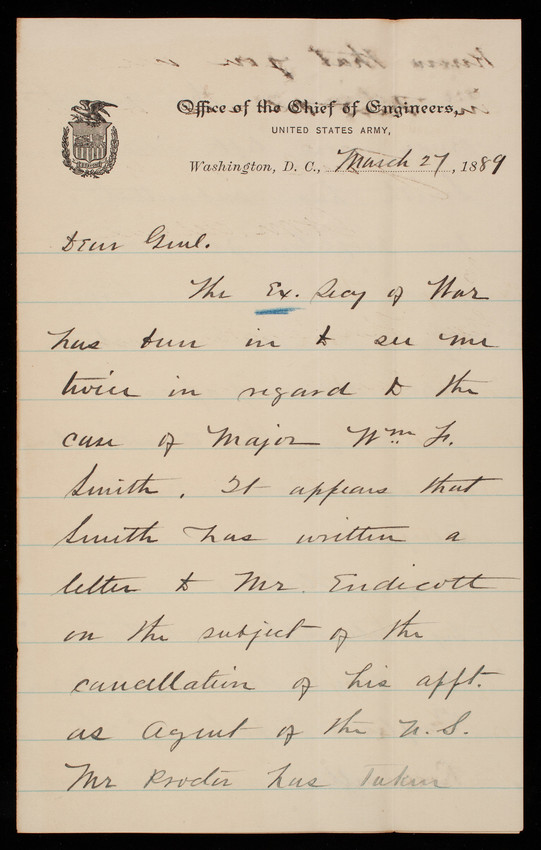 Office of the Chief of Engineers,
UNITED STATES ARMY,
Washington, D. C., March 27, 1889
Dear Genl.
The Ex. Secy of War
has been in to see me
twice in regard to the
case of Major Wm. F.
Smith. It appears that
Smith has written a
letter to Mr. Endicott
on the subject of the
cancellation of his appt.
as Agent of the U.S.
Mr Proctor has taken